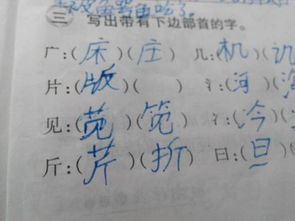 三 写出带有下边部首的字。
广:(床)(庄) 几:(机)(讥
片:(版)( ) 氵:(河)(
见:(苋)(笕) 冫:(今)(
斤:(芹)(折) 日:(旦)(